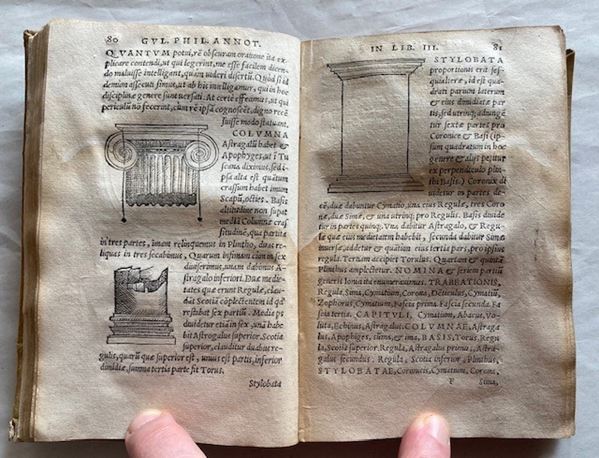 80 GVL. PHIL. ANNOT.
QVANTVM potui, rē obscuram oratione ita ex
plicare contendi, ut qui legerint, me esse facilem dicen-
do maluisse intelligant, quàm uideri disertū. Quòd si id
demum assecuti simus, ut ab his intelligamur, qui in hoc
disciplinæ genere sunt uersati. At certè effecimus, ut qui
periculū nō fecerint, cùm rē ipsā cognoscēt, digno recēsuisse
modo statuant.
COLVMNA
Astragalū habet &
Apophyges, ut ī Tu
scana diximus, sed i-
psa alta est quātum
crassum habet imum
Scapū, octies. Basi
altitudine non supat
mediā Columnæ cras
situdinē, qua partita
in tres partes, imam relinquemus in Plintho, duas re-
liquas in tres secabimus. Quarum infimam cùm in sex
diuiserimus, unam dabimus A-
stragalo inferiori. Duæ medie-
tates quæ erunt Regulæ, clau-
dāt Scotiā cōplectentem id qd
restabit sex partiū. Media ps
diuidetur etiā in sex, unā habe
bit Astragalus superior. Scotia
superior, clauditur duabus re
gulis, quarū quæ superior est, unius est partis, inferior
dimidiæ, summa tertia parte fit Torus.
Stylobata
IN LIB. III. 81
STYLOBATA
proportionis erit ses-
quialteræ, id est qua-
drati parum laterum
& eius dimidiatæ par
tis, sed utrinq; adiungē
tur sextæ partes pro
Coronice & Basi (ipsum
quadratum in hoc
genere & aliis petitur
ex perpendiculo plin-
thi Basis.) Coronix di
uidetur in partes de-
cē, duæ dabuntur Cymatio, una eius Regulæ, tres Coro
næ, duæ Simæ, & una utrinq; pro Regulis. Basis diuide
tur in partes quinq;. Vna dabitur Astragalo, & Regu-
læ quæ eius medietatem habebit, secunda dabitur Simæ
inuersæ, addetur & quātum eius tertia pars, pro ipsius
regula. Ternam accipiet Torulus. Quartam & quintā
Plinthus amplectetur. NOMINA & seriem partiū
generis Ionici ita enumerauimus. TRABEATIONIS,
Regula, Sima, Cymatium, Corona, Dēticulus, Cymatiū,
Zophorus, Cymatium, Fascia prima Fascia secunda. Fa
scia tertia. CAPITVLI, Cymatium, Abacus, Vo-
luta, Echinus, Astragalus. COLVMNAE, Astraga-
lus, Apophiges, sūmus, & ima, BASIS, Torus, Regu
la, Scotia superior. Regula, Astragalus primus, Astra-
galus secundus. Regula, Scotia inferior, Plinthus,
STYLOBATAE, Coronicis, Cymatium, Corona,
F Sima,